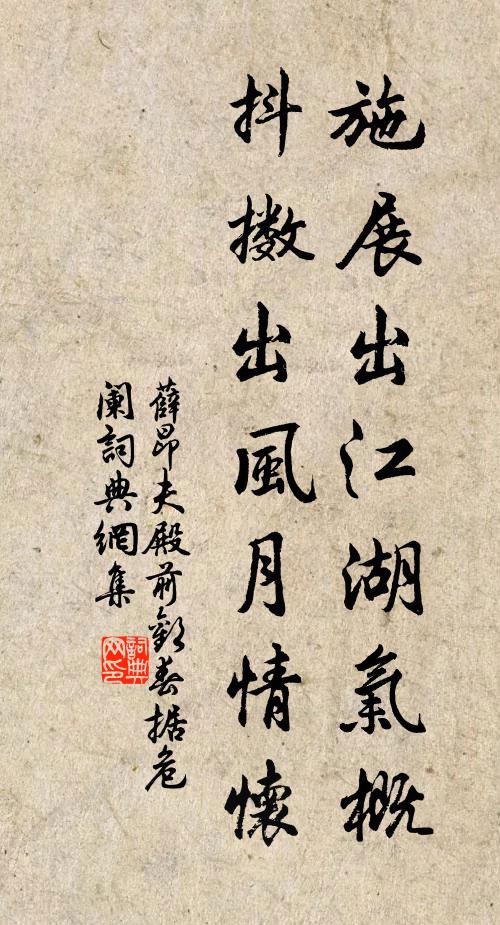 施展出江湖氣概
抖擻出風月情懷
薛昂夫殿前歡春据危
闌詞典網集
詞典網印